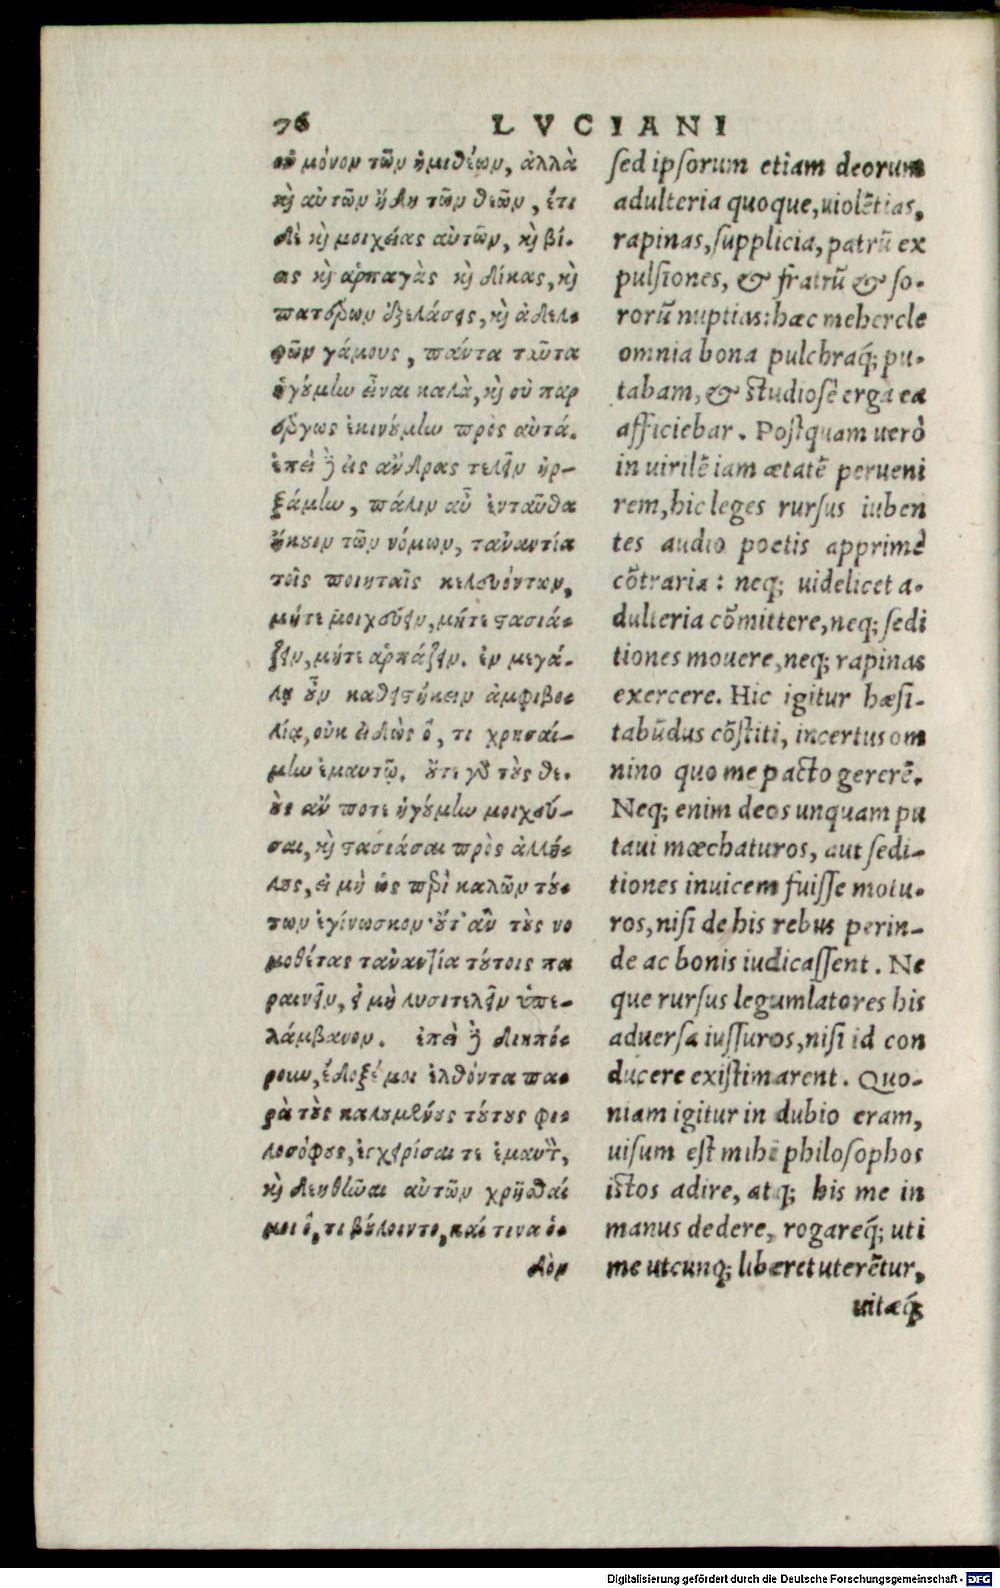 76 LVCIANI
οὐ μόνον τῶν ἡμιθέων, ἀλλὰ
καὶ αὐτῶν ἤδη τῶν θεῶν, ἔτι
δὲ καὶ μοιχείας αὐτῶν, καὶ βί-
ας καὶ ἁρπαγὰς καὶ δίκας, καὶ
πατέρων ἐξελάσεις, καὶ ἀδελ-
φῶν γάμους, πάντα ταῦτα
ἡγούμην εἶναι καλὰ, καὶ οὐ παρ
έργως ἐκινούμην πρὸς αὐτά.
ἐπεὶ δὲ εἰς ἄνδρας τελεῖν ἠρ-
ξάμην, πάλιν αὖ ἐνταῦθα
ἤκουον τῶν νόμων, τἀναντία
τοῖς ποιηταῖς κελευόντων,
μήτε μοιχεύειν, μήτε στασιά-
ζειν, μήτε ἁρπάζειν. ἐν μεγά-
λῃ οὖν καθειστήκειν ἀμφιβο-
λίᾳ, οὐκ εἰδὼς ὅ, τι χρησαί-
μην ἐμαυτῷ. οὔτε γὰρ τοὺς θε-
οὺς ἄν ποτε ἡγούμην μοιχεῦ-
σαι, καὶ στασιάσαι πρὸς ἀλλή-
λους, εἰ μὴ ὡς περὶ καλῶν τού-
των ἐγίνωσκον· οὔτ' ἂν τοὺς νο
μοθέτας τἀναντία τούτοις πα
ραινεῖν, εἰ μὴ λυσιτελεῖν ὑπε-
λάμβανον. ἐπεὶ δὲ διηπό-
ρουν, ἔδοξέ μοι ἐλθόντα πα-
ρὰ τοὺς καλουμένους τούτους φι-
λοσόφους, ἐγχειρίσαι τε ἐμαυτὸν,
καὶ δεηθῆναι αὐτῶν χρῆσθαί
μοι ὅ, τι βούλοιντο, καί τινα ὁ-
δὸν
sed ipsorum etiam deorum
adulteria quoque, uiolẽtias,
rapinas, supplicia, patrũ ex
pulsiones, & fratrũ & so-
rorũ nuptias: hæc mehercle
omnia bona pulchraq́; pu-
tabam, & studiosè erga ea
afficiebar. Postquam uerò
in uirilẽ iam ætatẽ perueni
rem, hic leges rursus iuben
tes audio poetis apprimè
cõtraria: neq; uidelicet a-
dulteria cõmittere, neq; sedi
tiones mouere, neq; rapinas
exercere. Hic igitur hæsi-
tabũdus cõstiti, incertus om
nino quo me pacto gererẽ.
Neq; enim deos unquam pu
taui mœchaturos, aut sedi-
tiones inuicem fuisse motu-
ros, nisi de his rebus perin-
de ac bonis iudicassent. Ne
que rursus legumlatores his
aduersa iussuros, nisi id con
ducere existimarent. Quo-
niam igitur in dubio eram,
uisum est mihi philosophos
istos adire, atq; his me in
manus dedere, rogareq́; uti
me utcunq; liberet uterẽtur,
uitæq́;
Digitalisierung gefördert durch die Deutsche Forschungsgemeinschaft - DFG